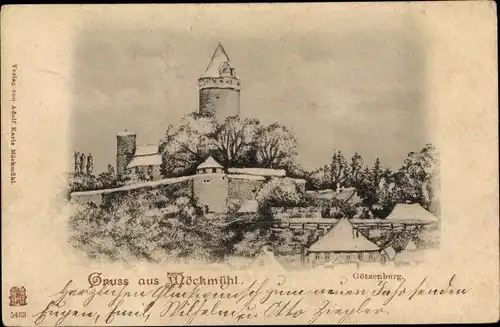 Verlag von Adolf Karle Möckmühl.
Gruss aus Möckmühl.
Götzenburg.
Herzlichen Glückwunsch zum neuen Jahr senden
Eugen, Emil, Wilhelm u. Otto Ziegler.
5463